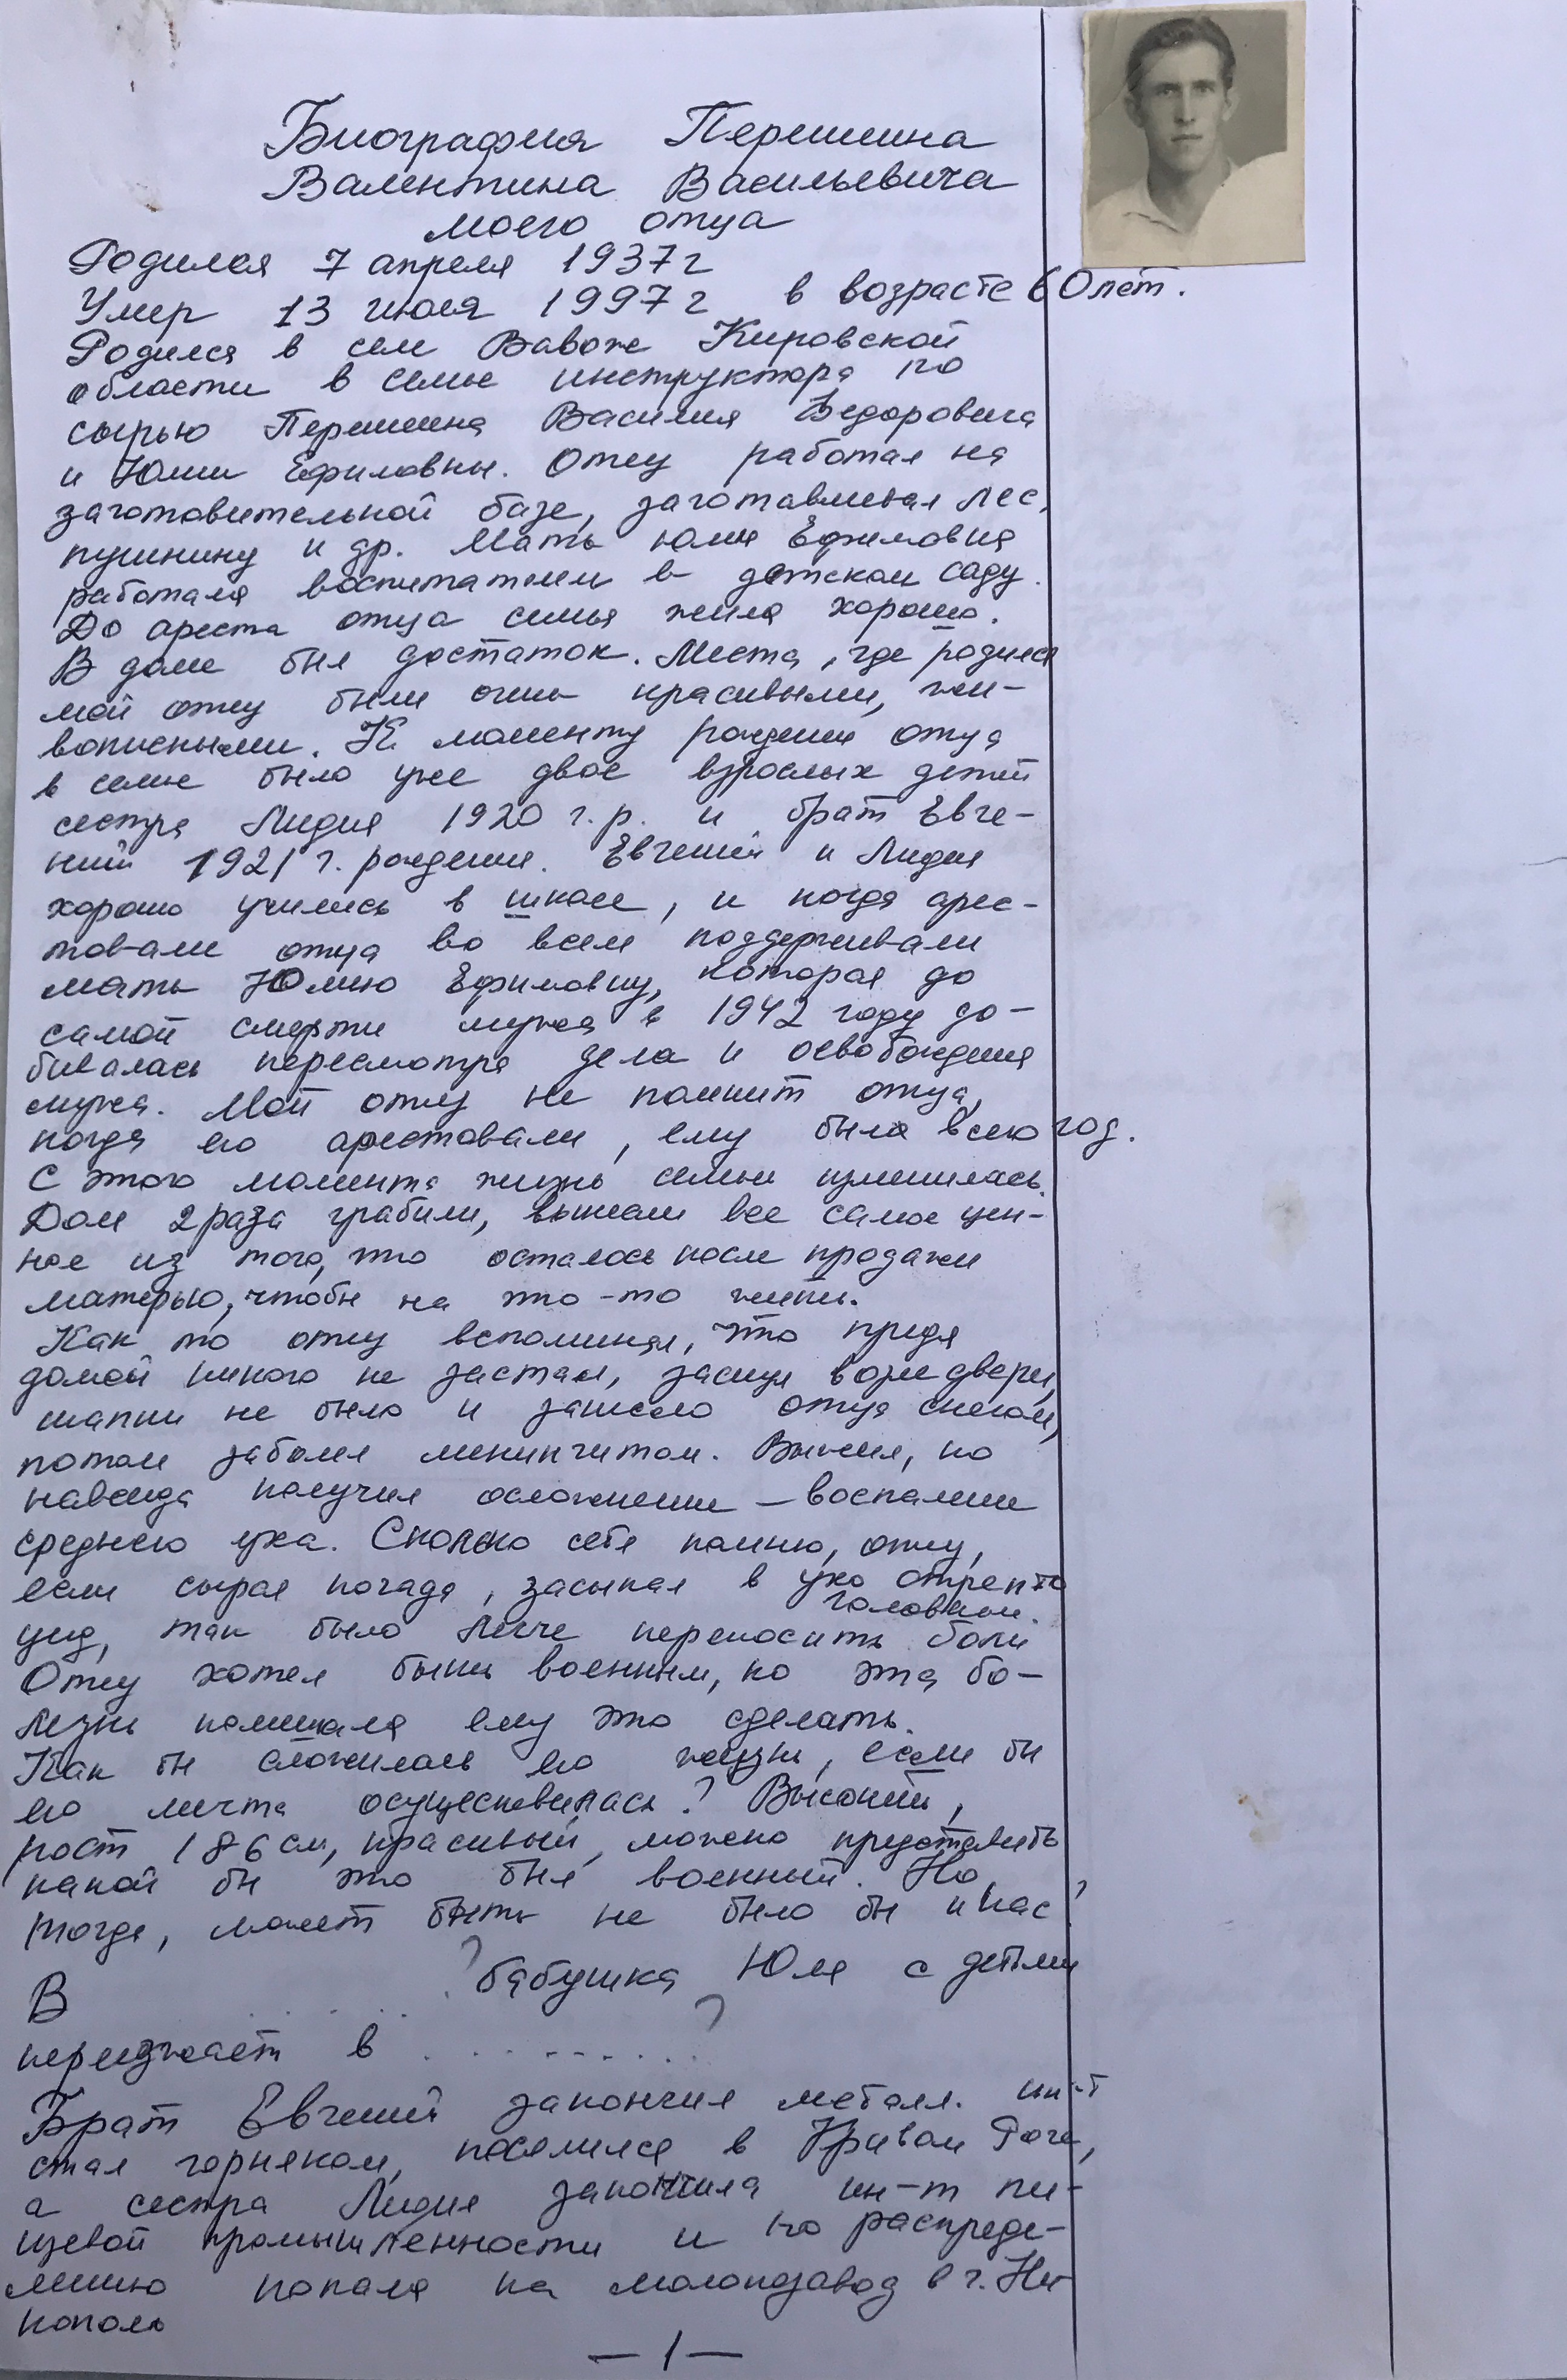 Биография Перешеина
Валентина Васильевича
моего отца
Родился 7 апреля 1937 г
Умер 13 июля 1997 г в возрасте 60 лет.
Родился в селе Вавоже Кировской
области в семье инструктора по
сырью Перешеина Василия Федоровича
и Юлии Ефимовны. Отец работал на
заготовительной базе, заготавливал лес,
пушнину и др. Мать Юлия Ефимовна
работала воспитателем в детском саду.
До ареста отца семья жила хорошо.
В доме был достаток. Места, где родился
мой отец были очень красивыми, жи-
вописными. К моменту рождения отца
в семье было уже двое взрослых детей
сестра Лидия 1920 г.р. и брат Евге-
ний 1921 г. рождения. Евгений и Лидия
хорошо учились в школе, и когда арес-
товали отца во всем поддерживали
мать Юлию Ефимовну, которая до
самой смерти мужа в 1942 году до-
бивалась пересмотра дела и освобождения
мужа. Мой отец не помнит отца,
когда его арестовали, ему было всего год.
С этого момента жизнь семьи изменилась.
Дом 2 раза грабили, вынесли все самое цен-
ное из того, что осталось после продажи
матерью, чтобы на что-то жить.
Как то отец вспоминал, что придя
домой никого не застал, заснул возле двери,
шапки не было и занесло отца снегом,
потом заболел менингитом. Выжил, но
навсегда получил осложнение – воспаление
среднего уха. Сколько себя помню, отец,
если сырая погода, засыпал в ухо стрепто
цид, так было легче переносить головные боли
Отец хотел быть военным, но эта бо-
лезнь помешала ему это сделать.
Как бы сложилась его жизнь, если бы
его мечта осуществилась? Высокий,
рост 186 см, красивый, можно представить
какой бы это был военный. Но,
тогда, может быть не было бы и нас?
В . . . . . ? бабушка Юля с детьми
переезжает в . . . . . . . . . ?
Брат Евгений закончил металл. ин-т
стал горняком, поселился в Кривом Роге,
а сестра Лидия закончила ин-т пи-
щевой промышленности и по распреде-
лению попала на молокозавод в г. Ни-
кополь
— 1 —